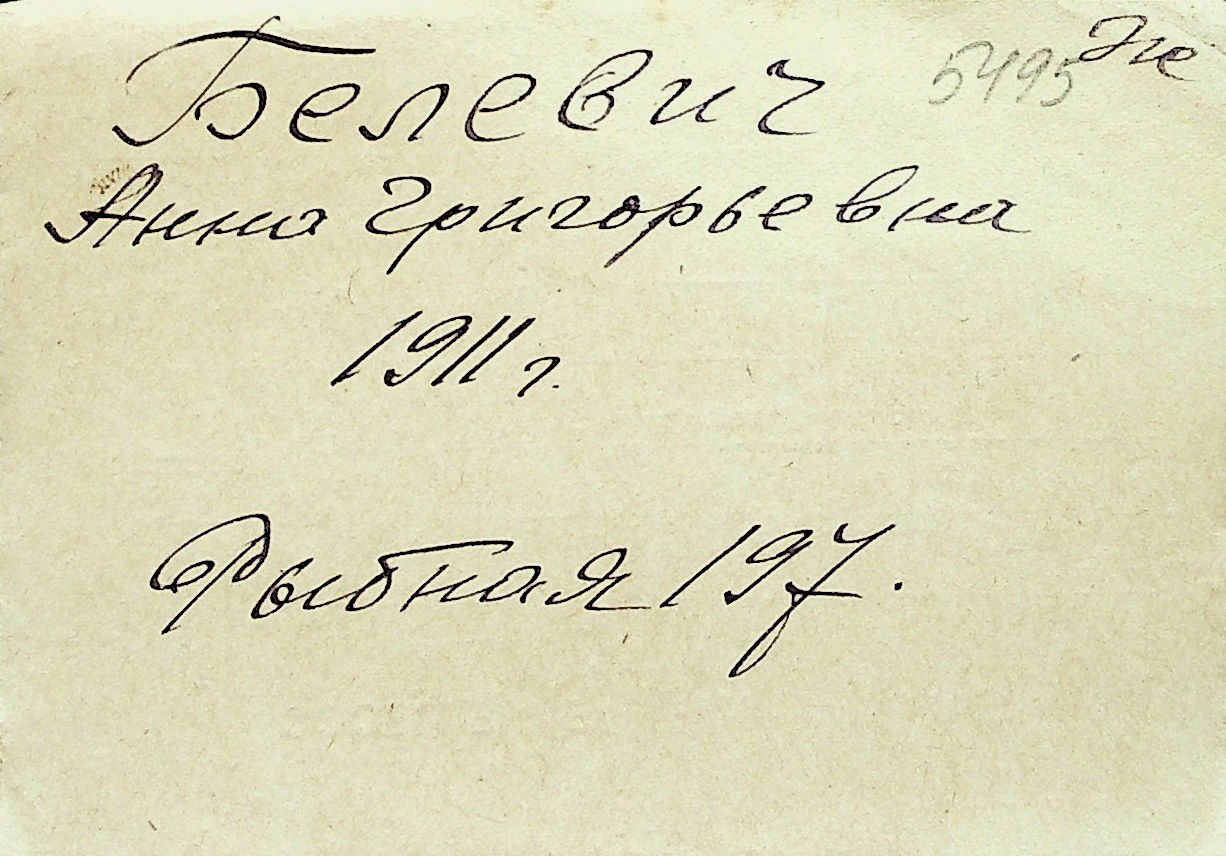 Белевич 5495
Анна Григорьевна
1911 г.
Рыбная 197.